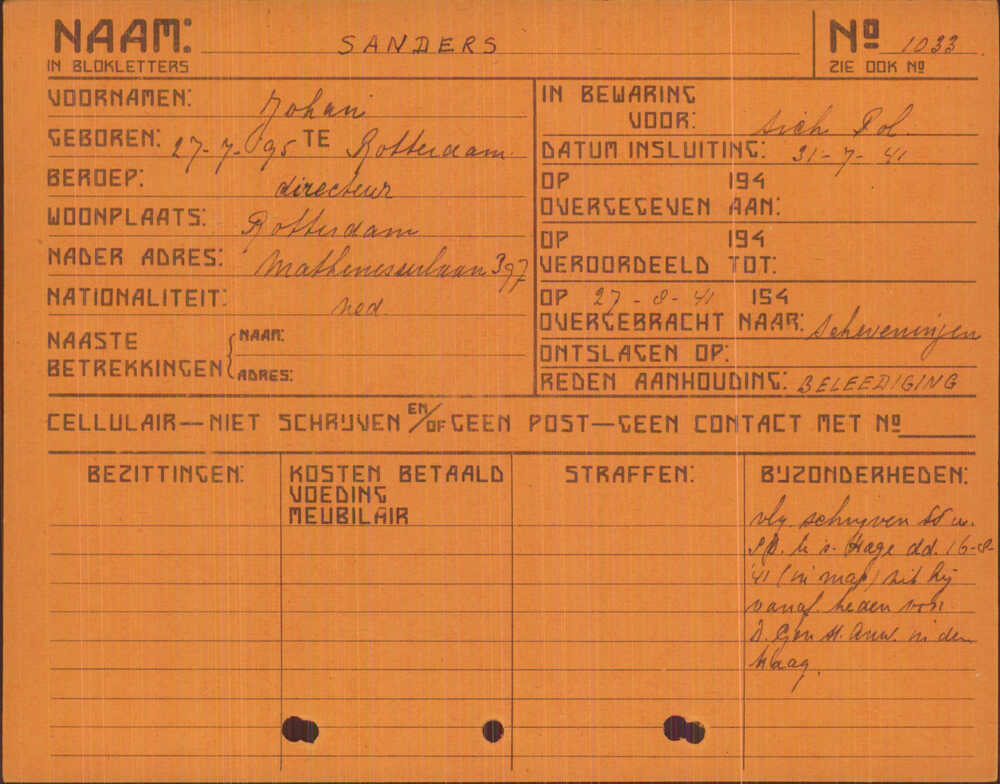 NAAM: SANDERS
IN BLOKLETTERS
Nº 1033
ZIE OOK Nº
VOORNAMEN: Johan
GEBOREN: 27-7-95 TE Rotterdam
BEROEP: directeur
WOONPLAATS: Rotterdam
NADER ADRES: Mathenesserlaan 397
NATIONALITEIT: ned.
NAASTE BETREKKINGEN
NAAM:
ADRES:
IN BEWARING
VOOR: Sich Pol.
DATUM INSLUITING: 31-7-41
OP 194
OVERGEGEVEN AAN:
OP 194
VEROORDEELD TOT:
OP 27-8-41 194
OVERGEBRACHT NAAR: Scheveningen
ONTSLAGEN OP:
REDEN AANHOUDING: BELEEDIGING
CELLULAIR—NIET SCHRIJVEN EN/OF GEEN POST—GEEN CONTACT MET Nº
BEZITTINGEN:
KOSTEN BETAALD
VOEDING
MEUBILAIR
STRAFFEN:
BIJZONDERHEDEN:
vlg schrijven SS u.
te s-Hage dd. 16-8-
'41 (in map) zit hij
vanaf heden voor
in den
Haag.